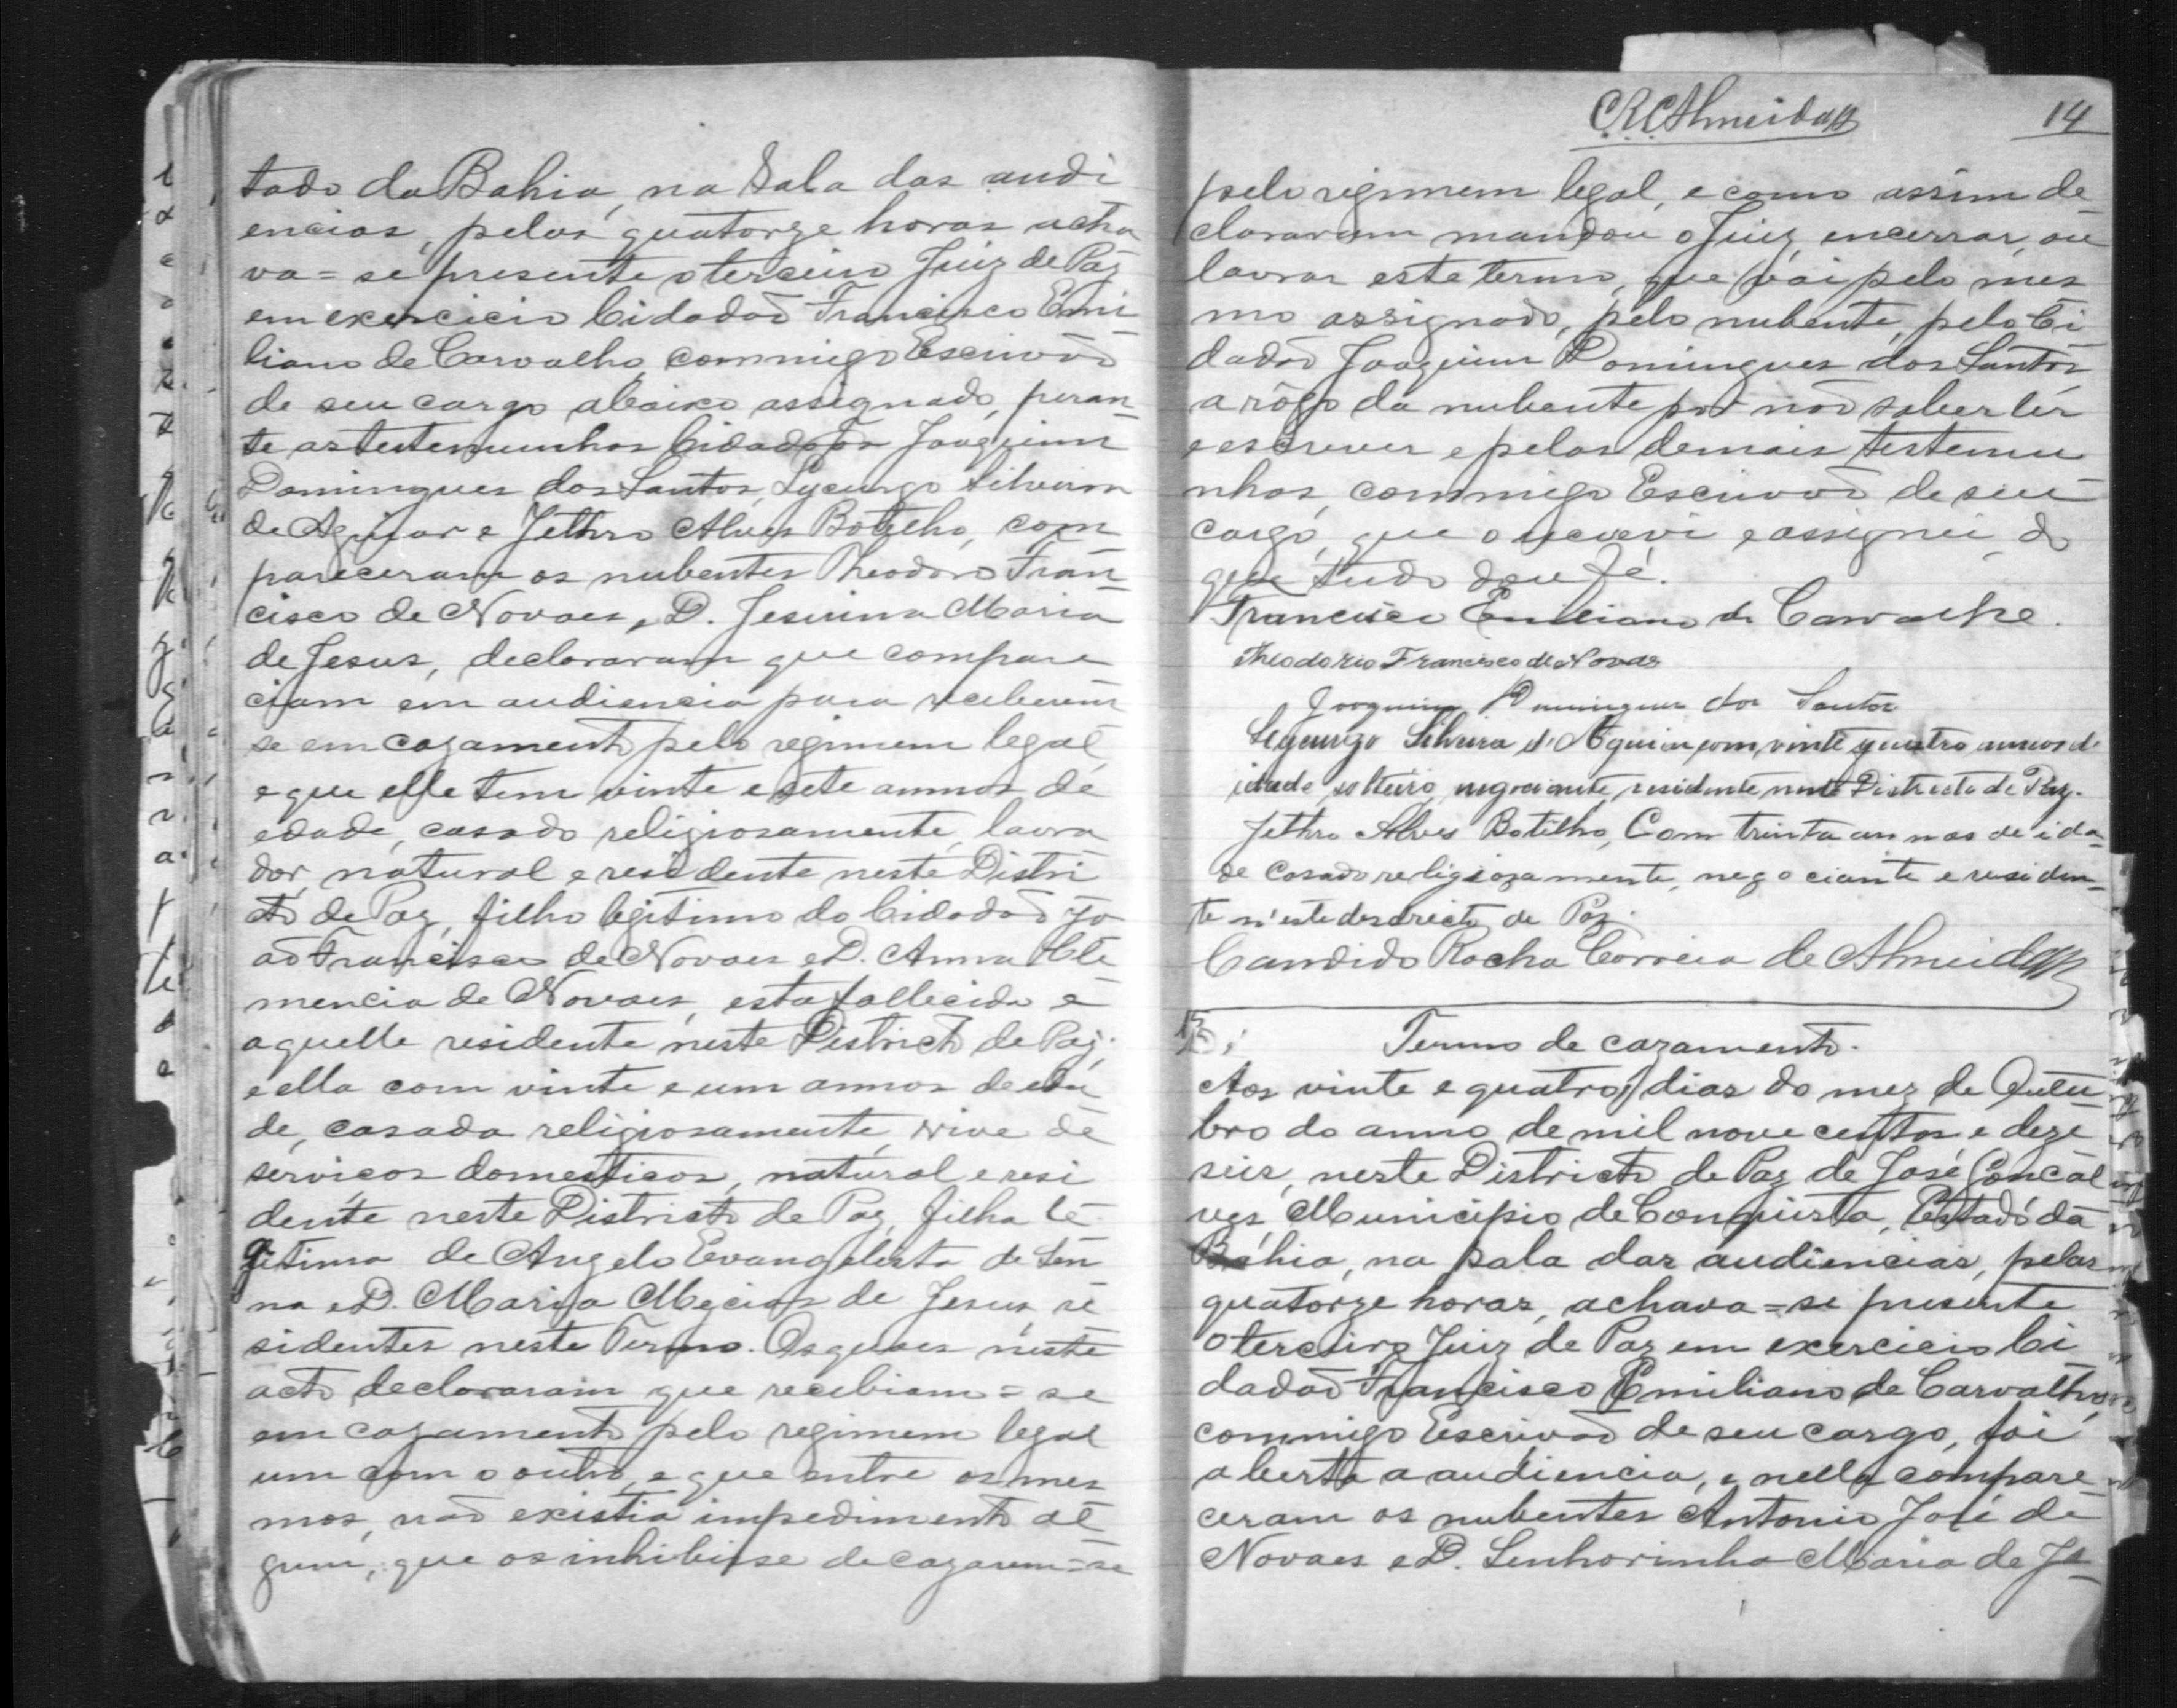 tado da Bahia, na Sala das audi
encias, pelas quatorze horas acha
va=se presente o terceiro Juiz de Paz
em exercicio Cidadaõ Francisco Emi
liano de Carvalho, commigo Escrivaõ
de seu cargo abaixo assignado, peran
te as testemunhas Cidadaõs Joaquim
Domingues dos Santos, Lycurgo Silveira
de Aguiar e Jethro Alves Botelho, com
pareceram os nubentes Theodoro Fran
cisco de Novaes, e D. Jesuina Maria
de Jesus, declararam que compare
ciam em audiencia para receberem
se em cazamento pelo regimem legal
e que elle tem vinte e sete annos de
edade, casado religiosamente, lavra
dor, natural e residente neste Distri
cto de Paz, filho legitimo do Cidadaõ Jo
aõ Francisco de Novaes e D. Anna Cle
mencia de Novaes, esta fallecida e
aquelle residente neste Districto de Paz;
e ella com vinte e um annos de eda
de, casada religiosamente, vive de
serviços domesticos, natural e resi
dente neste Districto de Paz, filha le
gitima de Angelo Evangelista de Sen
na e D. Maria Mecias de Jesus, re
sidentes neste Termo. Os quaes neste
acto declararam que recebiam=se
em cazamento pelo regimem legal
um com o outro, e que entre os mes
mos, naõ existia impedimento al
gum, que os inhibisse de cazarem=se
CRCAlmeida
14
pelo regimem legal, e como assim de
clararam mandou o Juiz encerrar, ou
lavrar este termo, que vai pelo mes
mo assignado, pelo nubente, pelo Ci
dadaõ Joaquim Domingues dos Santos
a rôgo da nubente por naõ saber lêr
e escrever e pelas demais testemu
nhas, commigo Escrivaõ de seu
cargo, que o escrevi e assignei, do
que tudo dou fé.
Francisco Emiliano de Carvalho.
Theodorio Francisco de Novaes
Joaquim Domingues dos Santos
Lycurgo Silveira de Aguiar, com vinte quatro annos de
idade, solteiro, negociante, residente neste Districto de Paz.
Jethro Alves Botelho, Com trinta annos de ida
de Casado religiozamente, negociante e residen
te n'este desdricto de Paz.
Candido Rocha Correia de Almeida
15
Termo de cazamento.
Aos vinte e quatro dias do mez de Outu
bro do anno de mil nove centos e deze
seis, neste Districto de Paz de José Goncal
ves, Municipio de Conquista, Estado da
Bahia, na sala das audiencias, pelas
quatorze horas, achava=se presente
o terceiro Juiz de Paz em exercicio Ci
dadaõ Francisco Emiliano de Carvalho,
commigo Escrivaõ de seu cargo, foi
aberta a audiencia, e nella compare
ceram os nubentes Antonio José de
Novaes e D. Senhorinha Maria de Je